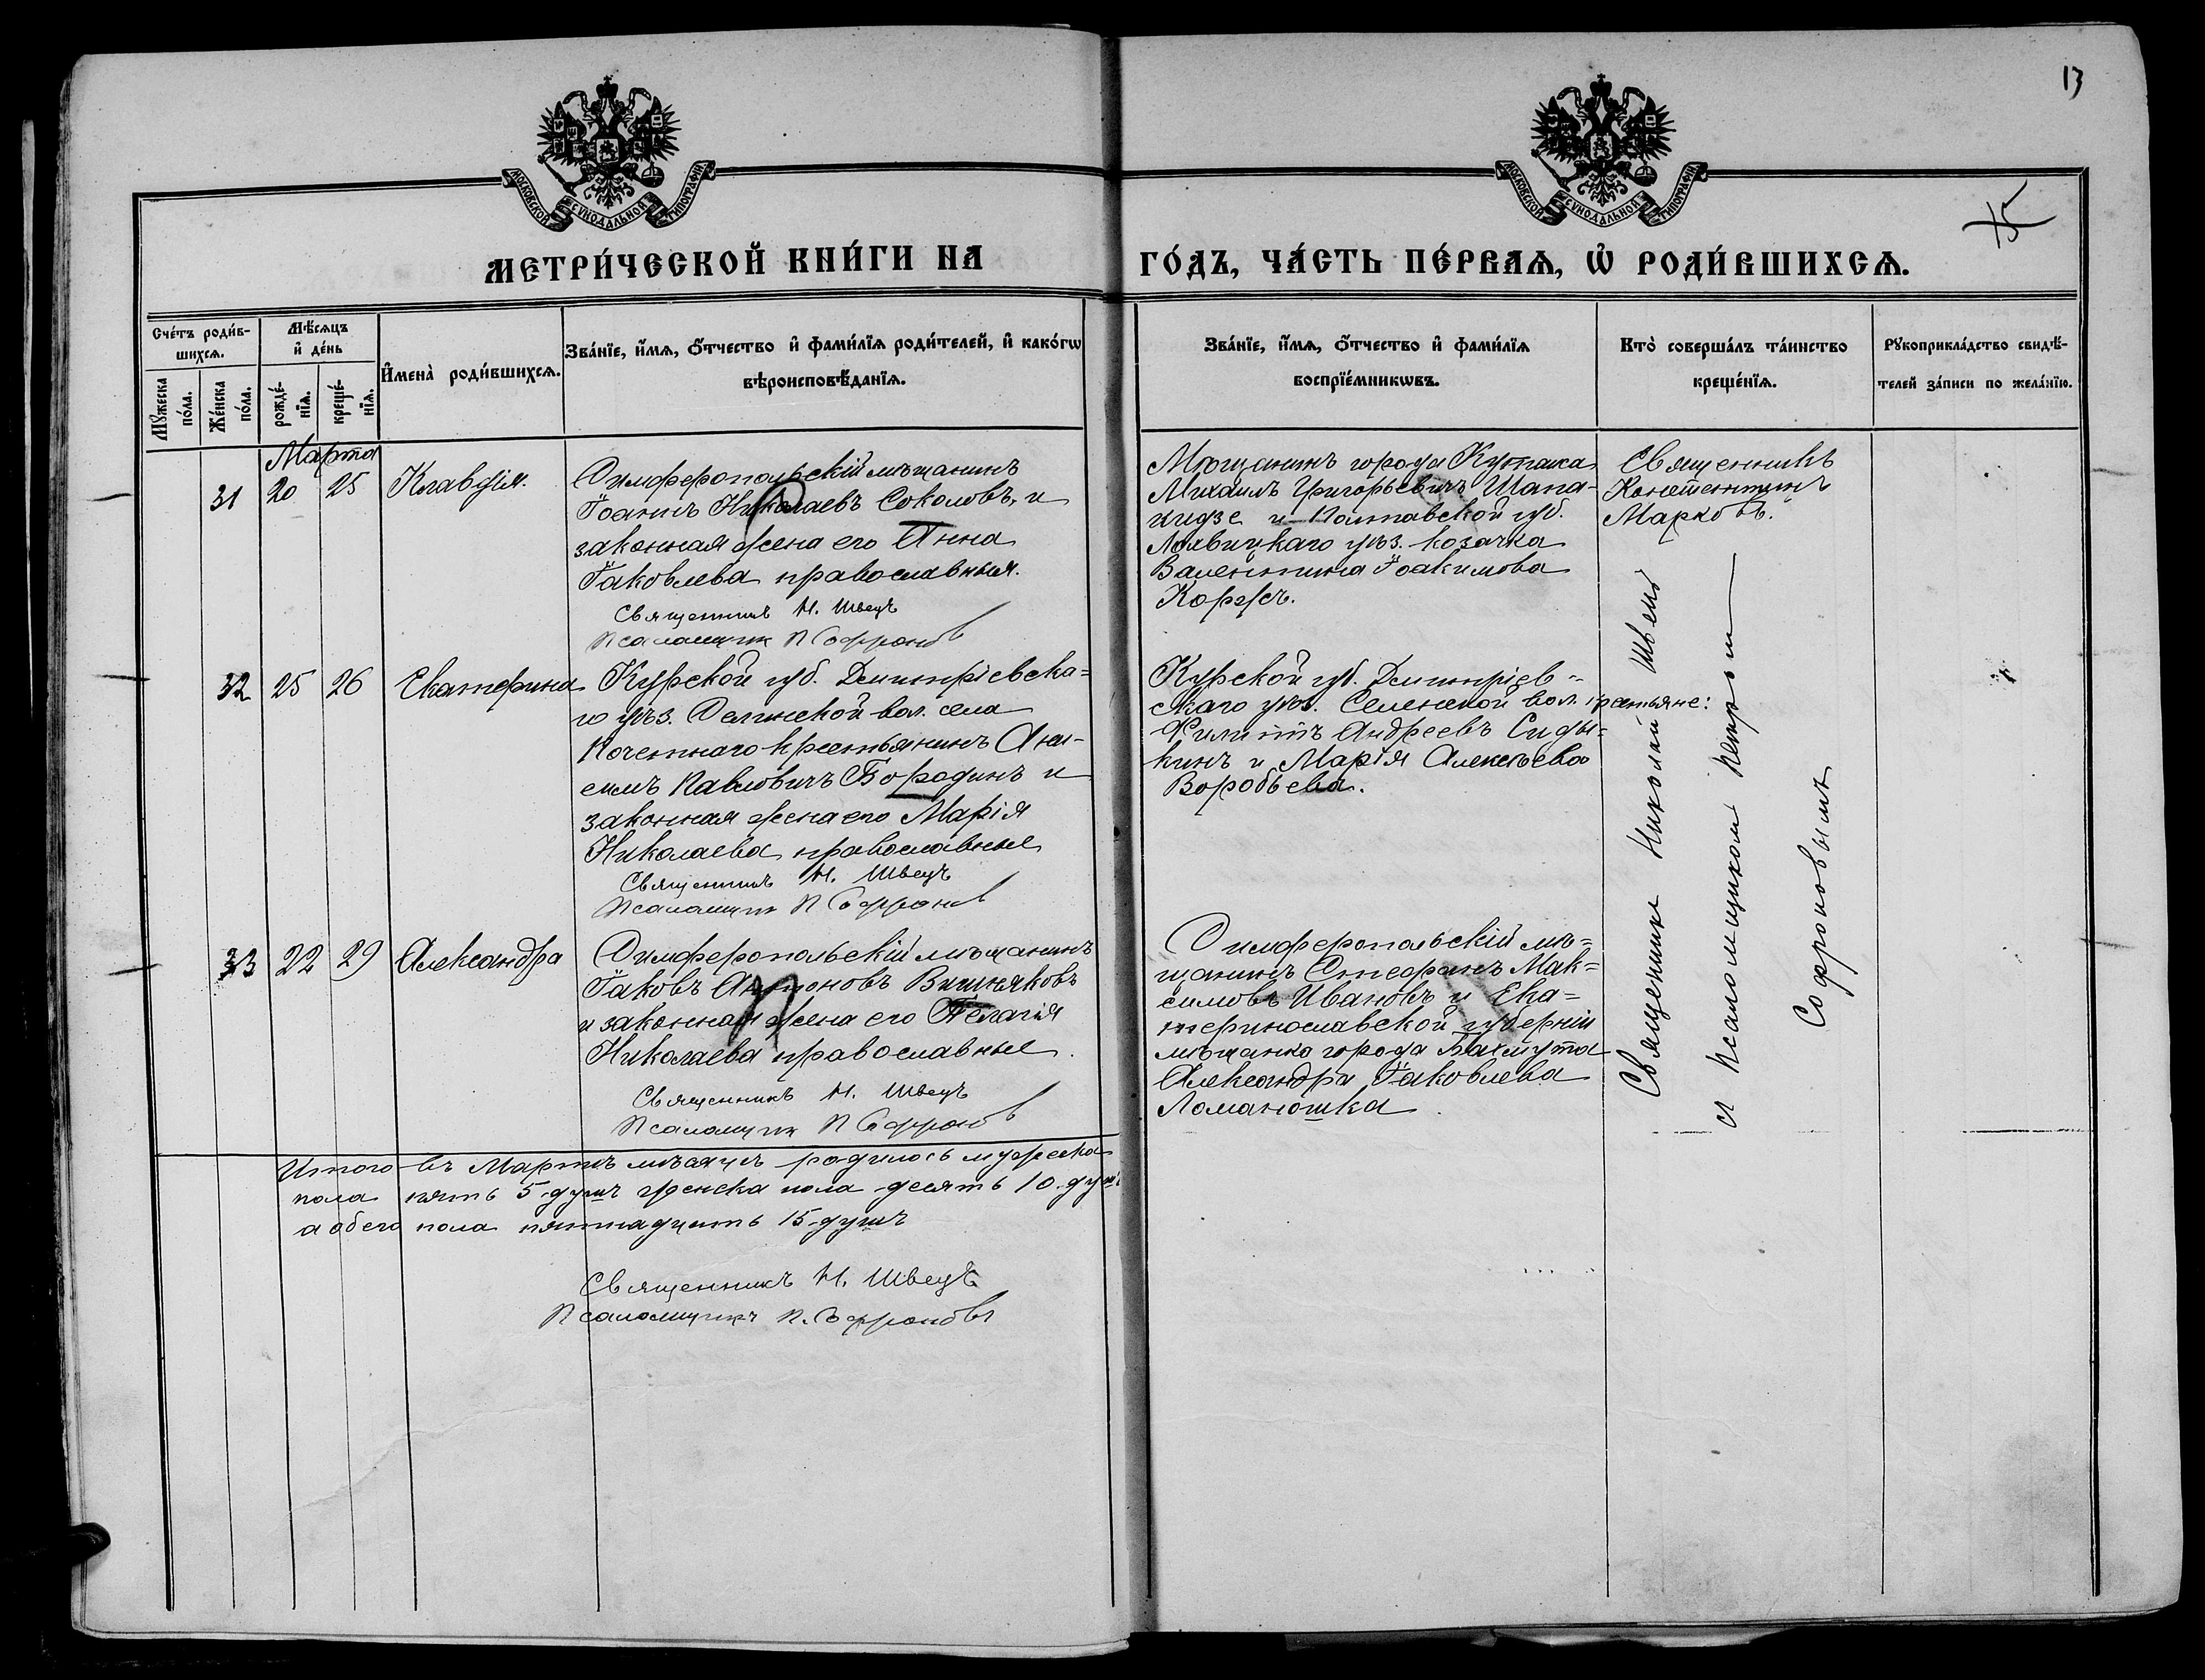 13
МОСКОВСКОЙ СУНОДАЛЬНОЙ ТИПОГРАФІИ
МОСКОВСКОЙ СУНОДАЛЬНОЙ ТИПОГРАФІИ
МЕТРИ́ЧЕСКОЙ КНИ́ГИ НА ГО́ДЪ, ЧА́СТЬ ПЕ́РВАѦ, Ѡ҆ РОДИ́ВШИХСѦ.
Сче́тъ роди́в-
шихсѧ.
Мꙋ́жеска
по́ла.
Же́нска
по́ла.
Мѣ́сѧцъ
и҆ де́нь
рожде́-
нїѧ.
креще́-
нїѧ.
И҆мена̀ роди́вшихсѧ.
Зва́нїе, и҆́мѧ, ѻ҆́тчество и҆ фами́лїѧ роди́телей, и҆ како́гѡ
вѣроисповѣ́данїѧ.
Зва́нїе, и҆́мѧ, ѻ҆́тчество и҆ фами́лїѧ
воспрїе́мникѡвъ.
Кто̀ соверша́лъ та́инство
креще́нїѧ.
Рꙋкоприкла́дство свидѣ́-
телей за́писи по жела́нїю.
Марта
31 20 25 Клавдія.
Симферопольскій мѣщанинъ
Іоаннъ Николаевъ Соколовъ, и
законная жена его Анна
Іаковлева православныя.
Священникъ Н. Швецъ
Псаломщик П Софронов
Мѣщанинъ города Кутаиса
Михаилъ Григорьевичъ Шапа-
идзе и Полтавской губ.
Лохвицкаго уѣз. козачка
Валентина Іоакимова
Коржъ.
Священникъ
Константинъ
Марковъ.
32 25 26 Екатерина
Курской губ. Дмитріевска=
го уѣз. Селинской вол. села
Кочетнаго крестьянинъ Ани-
симъ Павловичъ Бородинъ и
законная жена его Марія
Николаева православные
Священникъ Н. Швецъ
Псаломщик П Софронов
Курской губ. Дмитріев-
скаго уѣз. Селенской вол. крестьяне:
Филиппъ Андреевъ Сиды=
кинъ и Марія Алексѣева
Воробьева.
33 22 29 Александра
Симферопольскій мѣщанинъ
Іаковъ Антоновъ Вишняковъ
и законная жена его Пелагія
Николаева православные.
Священникъ Н. Швецъ
Псаломщик П Софронов
Симферопольскій мѣ=
щанинъ Стефанъ Мак=
симовъ Ивановъ и Ека=
теринославской губерніи
мѣщанка города Бахмута
Александра Іаковлева
Ломаношка.
Священник Николай Швец
и Псаломщиком Петром
Софроновымъ
Итого въ Мартѣ мѣсяцѣ родилось мужеска
пола пять 5 душъ женска пола десять 10 душъ
а обего пола пятнадцать 15 душъ
Священникъ Н. Швецъ
Псаломщикъ П. Софроновъ